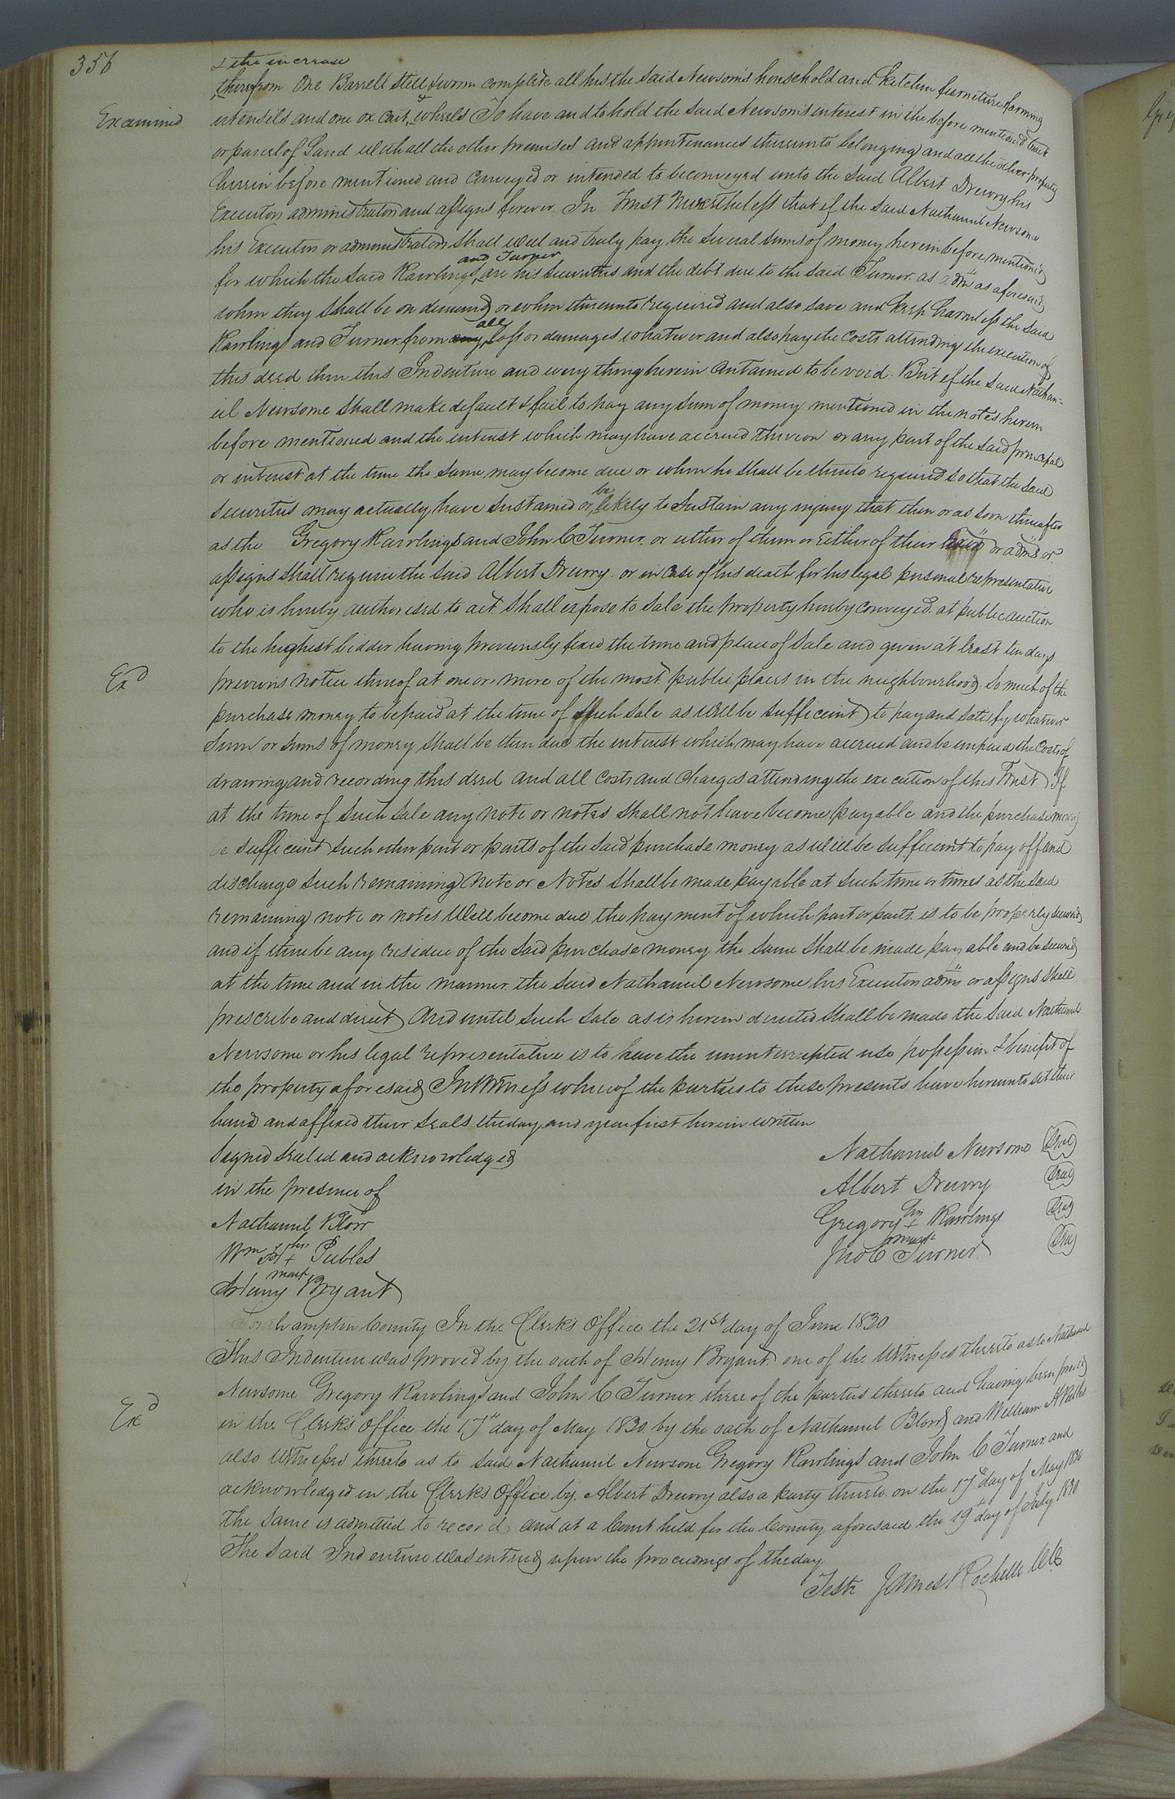 356
& the increase
therefrom One Barrell Still & worm complete all his the said Newsom's household and kitchen furniture farming
Examined
utensils and one ox cart & wheels To have and to hold the said Newsoms interest in the before mentioned tract
or parcel of Land with all the other premises and appurtenances thereunto belonging and all the other property
herein before mentioned and conveyed or intended to be conveyed unto the said Albert Drewry his
Executors administrators and assigns forever In Trust Nevertheless that if the said Nathaniel Newsome
his Executors or administrators shall well and truly pay the several sums of money herein before mentioned
for which the said Rawlings and Turner are his securities and the debt due to the said Turner as adm as aforesaid
when they shall be on demand or when thereunto required and also save and keep harmless the said
Rawlings and Turner from any all loss or damages whatever and also pay the costs attending the execution of
this deed then this Indenture and every thing herein contained to be void. But if the said Nathan-
iel Newsome shall make default & fail to pay any sum of money mentioned in the notes herein
before mentioned and the interest which may have accrued thereon or any part of the said principal
or interest at the time the same may become due or when he shall be thereto required so that the said
securities may actually have sustained or be likely to sustain any injury that then or as soon thereafter
as the Gregory Rawlings and John C Turner or either of them or Either of their or adms or
assigns shall require the said Albert Drewry or in case of his death for his legal personal representative
who is hereby authorised to act shall expose to sale the property hereby conveyed at public auction
to the highest bidder having previously fixed the time and place of sale and given at least ten days
Exd
previous notice thereof at one or more of the most public places in the neighbourhood so much of the
purchase money to be paid at the time of such sale as will be sufficient to pay and satisfy whatever
Sum or sums of money shall be then due the interest which may have accrued and be unpaid the Costs of
drawing and recording this deed and all costs and charges attending the execution of this Trust. If
at the time of such sale any note or notes shall not have become payable and the purchase money
be sufficient such other part or parts of the said purchase money as will be sufficient to pay off and
discharge such remaining Note or Notes shall be made payable at such time or times as the said
remaining note or notes will become due the payment of which part or parts is to be properly secured
and if there be any residue of the said purchase money the same shall be made payable and be secured
at the time and in the manner the said Nathaniel Newsome his Executors adms or assigns shall
prescribe and direct And until such sale as is herein directed shall be made the said Nathaniel
Newsome or his legal representative is to have the uninterrupted use possession & benefit of
the property aforesaid In Witness whereof the parties to these presents have hereunto set their
hand and affixed their seals the day and year first herein written
Signed sealed and acknowledged
in the presence of
Nathaniel Blow
Wm H his + mark Peebles
Henry Bryant
Nathaniel Newsome Seal
Albert Drewry Seal
Gregory his + mark Rawlings Seal
Jno C Turner Seal
Southampton County In the Clerks Office the 21st day of June 1830
This Indenture was proved by the oath of Henry Bryant one of the Witnesses thereto as to Nathaniel
Newsome Gregory Rawlings and John C Turner three of the parties thereto and having been proved
Exd
in the Clerks Office the 17th day of May 1830 by the oath of Nathaniel Blow and William H Peebles
also Witnesses thereto as to said Nathaniel Newsome Gregory Rawlings and John C Turner and
acknowledged in the Clerks Office by Albert Drewry also a party thereto on the 17th day of May 1830
The same is admitted to record and at a Court held for the County aforesaid the 19th day of July 1830
The said Indenture was entered upon the proceedings of the day
Teste James Rochelle CC